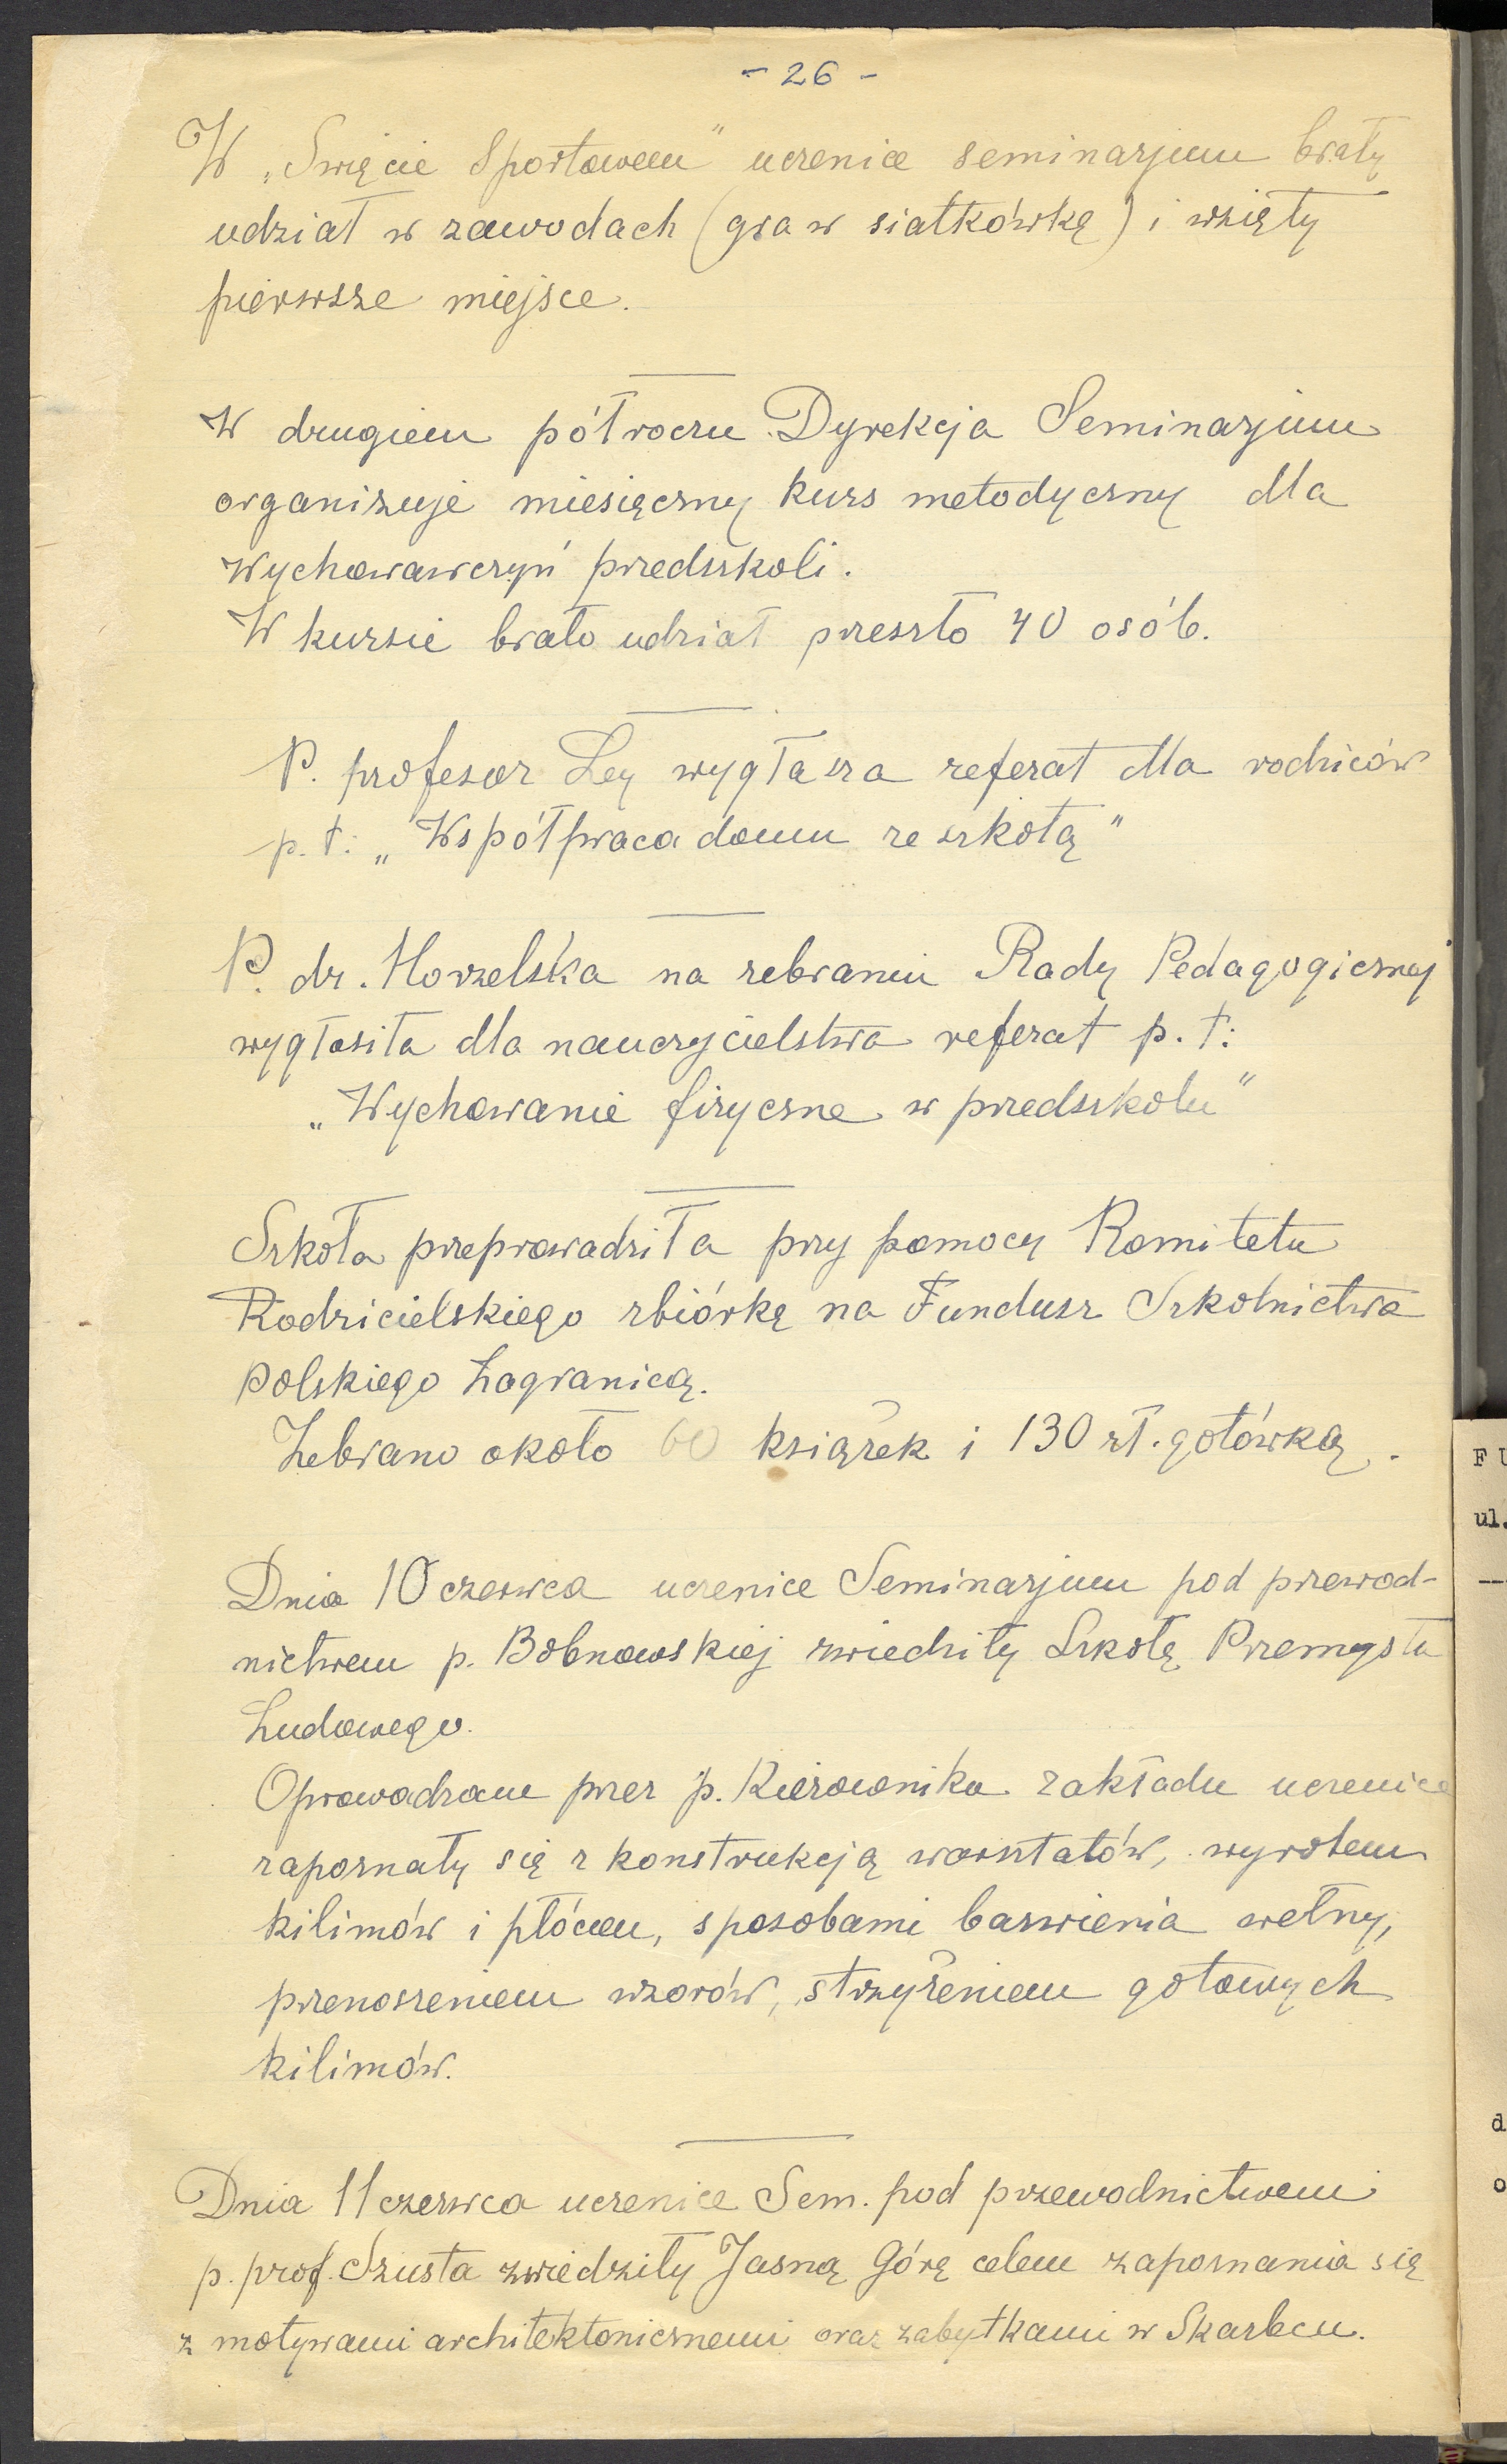 - 26 -
W „Święcie Sportowem" uczenice seminarjum brały
udział w zawodach (gra w siatkówkę) i wzięły
pierwsze miejsce.
W drugiem półroczu Dyrekcja Seminarjum
organizuje miesięczny kurs metodyczny dla
wychowawczyń przedszkoli.
W kursie brało udział przeszło 40 osób.
P. profesor Ley wygłasza referat dla rodziców
p.t: „Współpraca domu ze szkołą"
P. dr. Horzelska na zebraniu Rady Pedagogicznej
wygłosiła dla nauczycielstwa referat p.t:
„Wychowanie fizyczne w przedszkolu"
Szkoła przeprowadziła przy pomocy Komitetu
Rodzicielskiego zbiórkę na Fundusz Szkolnictwa
Polskiego Zagranicą.
Zebrano około 60 książek i 130 zł. gotówką.
Dnia 10 czerwca uczenice Seminarjum pod przewod-
nictwem p. Bobnowskiej zwiedziły Szkołę Przemysłu
Ludowego.
Oprowadzane przez p. Kierownika zakładu uczenice
zapoznały się z konstrukcją warsztatów, wyrobem
kilimów i płócien, sposobami barwienia wełny,
przenoszeniem wzorów, strzyżeniem gotowych
kilimów.
Dnia 11 czerwca uczenice Sem. pod przewodnictwem
p. prof. Szusta zwiedziły Jasną Górę celem zapoznania się
z motywami architektonicznemi oraz zabytkami w Skarbcu.
F U
ul.
d
o